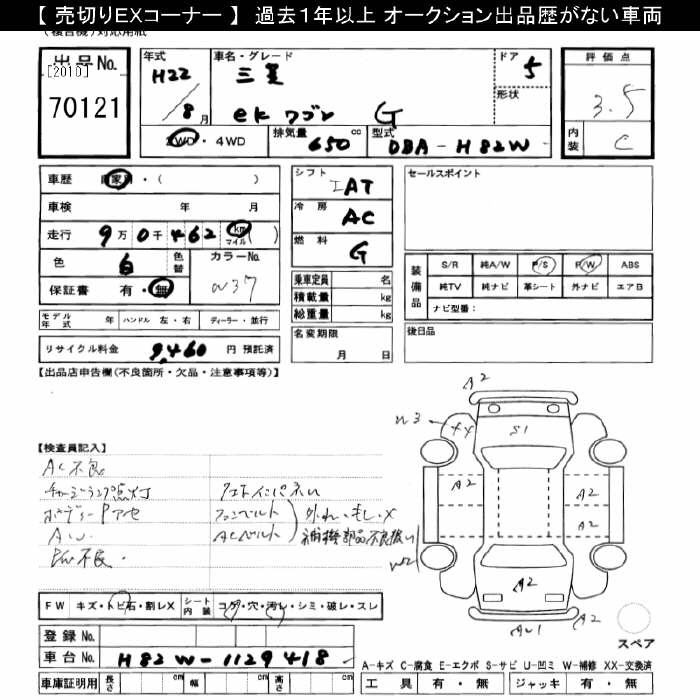 【 売切りEXコーナー 】 過去1年以上 オークション出品歴がない車両
出品No.
[2010]
70121
年式
H22
/8月
車名・グレード
三菱
ek ワゴン G
ドア
5
形状
評価点
3.5
内装
C
2WD・4WD
排気量 650 cc
型式 DBA-H82W
車歴 自家・( )
車検 年 月
走行 9万0千462 km マイル ( )
色 白 色替
カラーNo.
W37
保証書 有・無
モデル年式 年 ハンドル 左・右 ディーラー・並行
リサイクル料金 9,460 円 預託済
シフト IAT
冷房 AC
燃料 G
乗車定員 名
積載量 kg
総重量 kg
名変期限
月 日
セールスポイント
装備品
S/R 純A/W P/S P/W ABS
純TV 純ナビ 革シート 外ナビ エアB
ナビ型番:
後日品
【出品店申告欄(不良箇所・欠品・注意事項等)】
【検査員記入】
AC不良
チャージランプ点灯
ボディーPアセ
AW
PW不良
フロントインパネW
ファンベルト
ACベルト
外れ・もし・X
補機部品不良扱い
A2
W3
XX
S1
A2
A2
A2
A2
W2
A2
AW1
A2
スペア
FW キズ・トビ石・割レX
シート内装 コゲ・穴・汚レ・シミ・破レ・スレ
登録No.
車台No. H82W-1129418
車庫証明用 長さ cm 幅 cm 高さ cm
A-キズ C-腐食 E-エクボ S-サビ U-凹ミ W-補修 XX-交換済
工具 有・無 ジャッキ 有・無